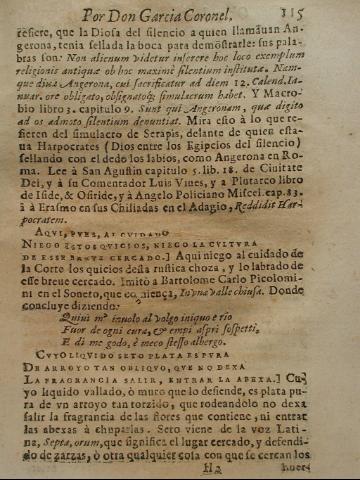 Por Don Garcia Coronel. 115
refiere, que la Diosa del silencio a quien llamauan An-
gerona, tenia sellada la boca para demostrarle: sus pala-
bras son: Non alienum videtur inserere hoc loco exemplum
religionis antiquæ ob hoc maximè silentium institutæ. Nam-
que diua Angerona, cui sacrificatur ad diem 12. Calend. Ia-
nuar. ore obligato, obsignatoq; simulacrum habet. Y Macro-
bio libro 3. capitulo 9. Sunt qui Angeronam, quæ digito
ad os admoto silentium denuntiat. Mira esto à lo que re-
fieren del simulacro de Serapis, delante de quien esta-
ua Harpocrates (Dios entre los Egipcios del silencio)
sellando con el dedo los labios, como Angerona en Ro-
ma. Lee à San Agustin capitulo 5. lib. 18. de Ciuitate
Dei, y à su Comentador Luis Viues, y a Plutarco libro
de Iside, & Osiride, y à Angelo Policiano Miscel. cap. 83.
à Erasmo en sus Chiliadas en el Adagio, Reddidit Har-
pocratem.
AQVI, PVES, AL CVIDADO
NIEGO ESTOS QVICIOS, NIEGO LA CVLTVRA
DE ESSE BREVE CERCADO.] Aqui niego al cuidado de
la Corte los quicios desta rustica choza, y lo labrado de
esse breue cercado. Imitò a Bartolome Carlo Picolomi-
ni en el Soneto, que comiença, In vna valle chiusa. Donde
concluye diziendo:
Quiui m' inuolo al volgo iniquo e rio
Fuor de ogni cura, & empi aspri sospetti,
E di me godo, è meco stesso albergo.
CVYO LIQVIDO SETO PLATA ES PVRA
DE ARROYO TAN OBLIQVO, QVE NO DEXA
LA FRAGRANCIA SALIR, ENTRAR LA ABEXA.] Cu-
yo liquido vallado, ò muro que lo defiende, es plata pu-
ra de vn arroyo tan torzido, que rodeandolo no dexa
salir la fragrancia de las flores que contiene, ni entrar
las abexas à chuparlas. Seto viene de la voz Lati-
na, Septa, orum, que significa el lugar cercado, y defendi-
do de zarzas, ò otra qualquier cosa con que se cercan los
H 2 huer-